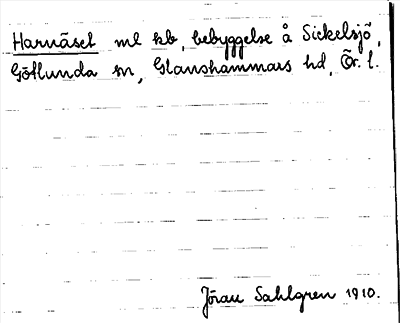 Harnäset ml kb, bebyggelse å Sickelsjö,
Götlunda sn, Glanshammars hd, Ör. l.
Jöran Sahlgren 1910.